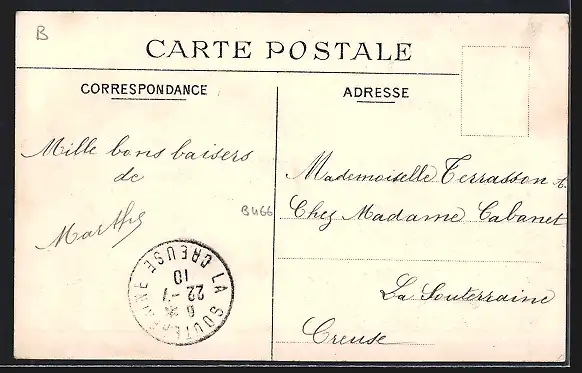 B
CARTE POSTALE
CORRESPONDANCE
ADRESSE
Mille bons baisers
de
Marthe
B466
LA SOUTERRAINE
CREUSE
6
22 -7
10
Mademoiselle Terrasson
Chez Madame Cabanet
La Souterraine
Creuse